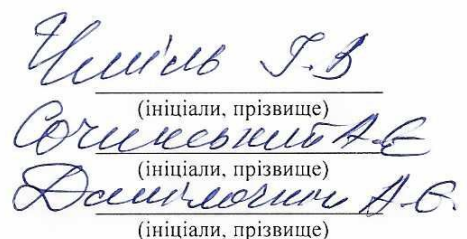 Чміль Г.В
(ініціали, прізвище)
Сочинський А.Є
(ініціали, прізвище)
А.Є.
(ініціали, прізвище)